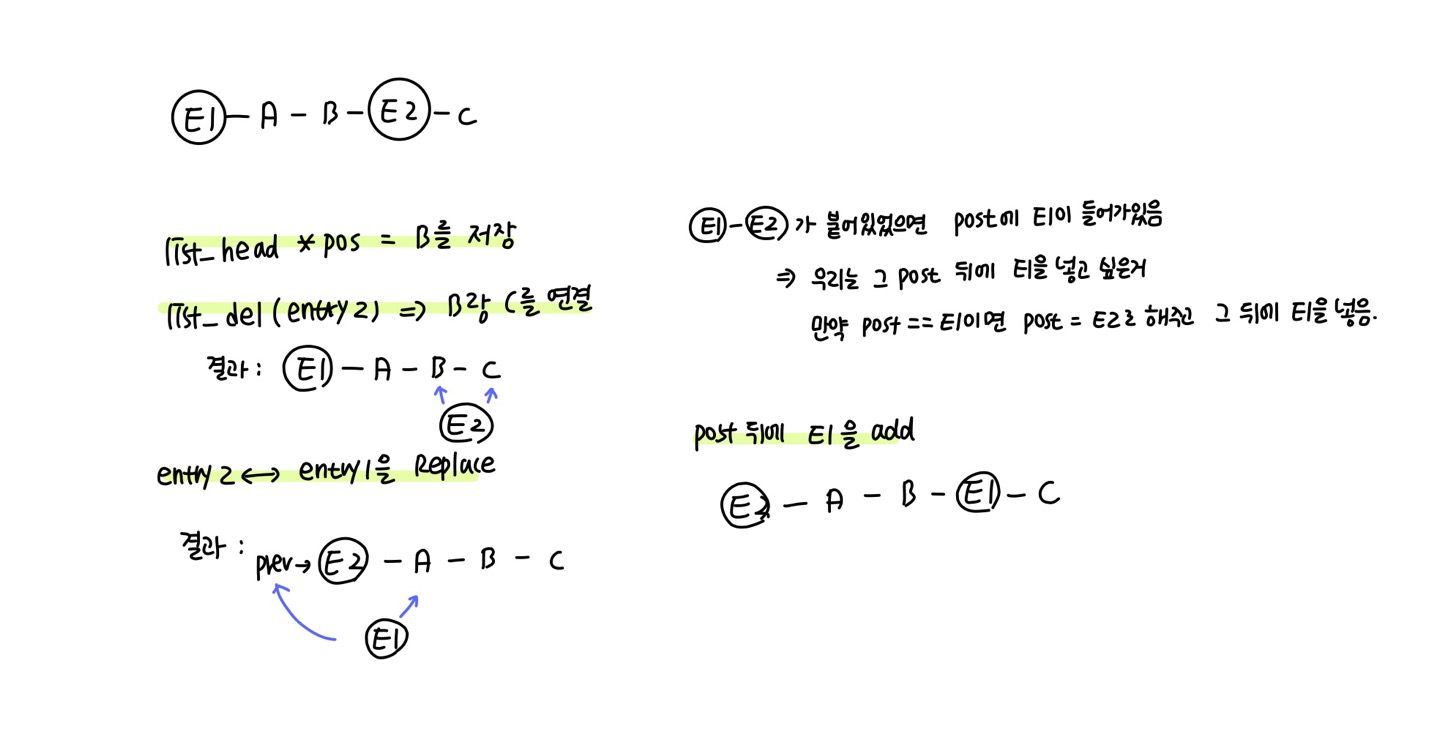 E1 - A - B - E2 - C
list_head *pos = B를 저장
list_del (entry2) => B랑 C를 연결
결과 : E1 - A - B - C
E2
entry2 <-> entry1을 Replace
결과 : prev → E2 - A - B - C
E1
E1 - E2 가 붙어있었으면 post에 E1이 들어가있음
⇒ 우리는 그 post 뒤에 E1을 넣고 싶은거
만약 post == E1이면 post = E2로 해주고 그 뒤에 E1을 넣음.
post 뒤에 E1을 add
E2 - A - B - E1 - C